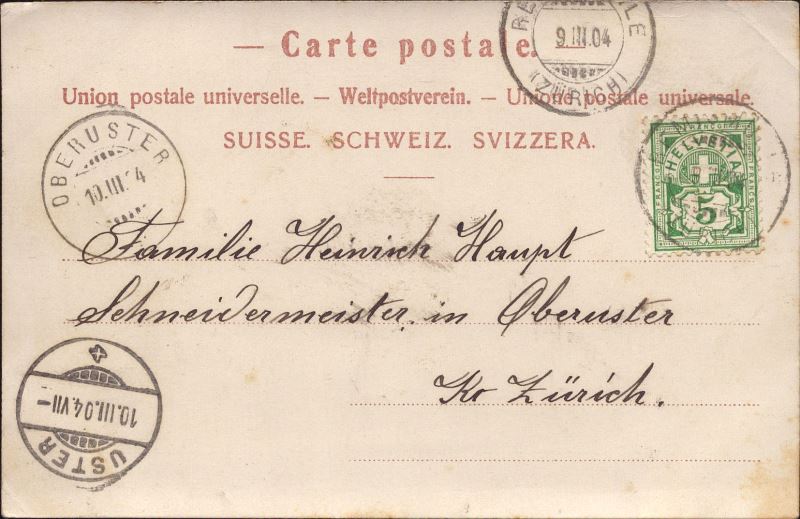 Carte postale.
9.III.04
(ZÜRICH)
Union postale universelle. — Weltpostverein. — Unione postale universale.
SUISSE. SCHWEIZ. SVIZZERA.
OBERUSTER
10.III.04
HELVETIA
FRANCO
5
Familie Heinrich Haupt
Schneidermeister in Oberuster
Kt Zürich.
10.III.04.VII–
USTER